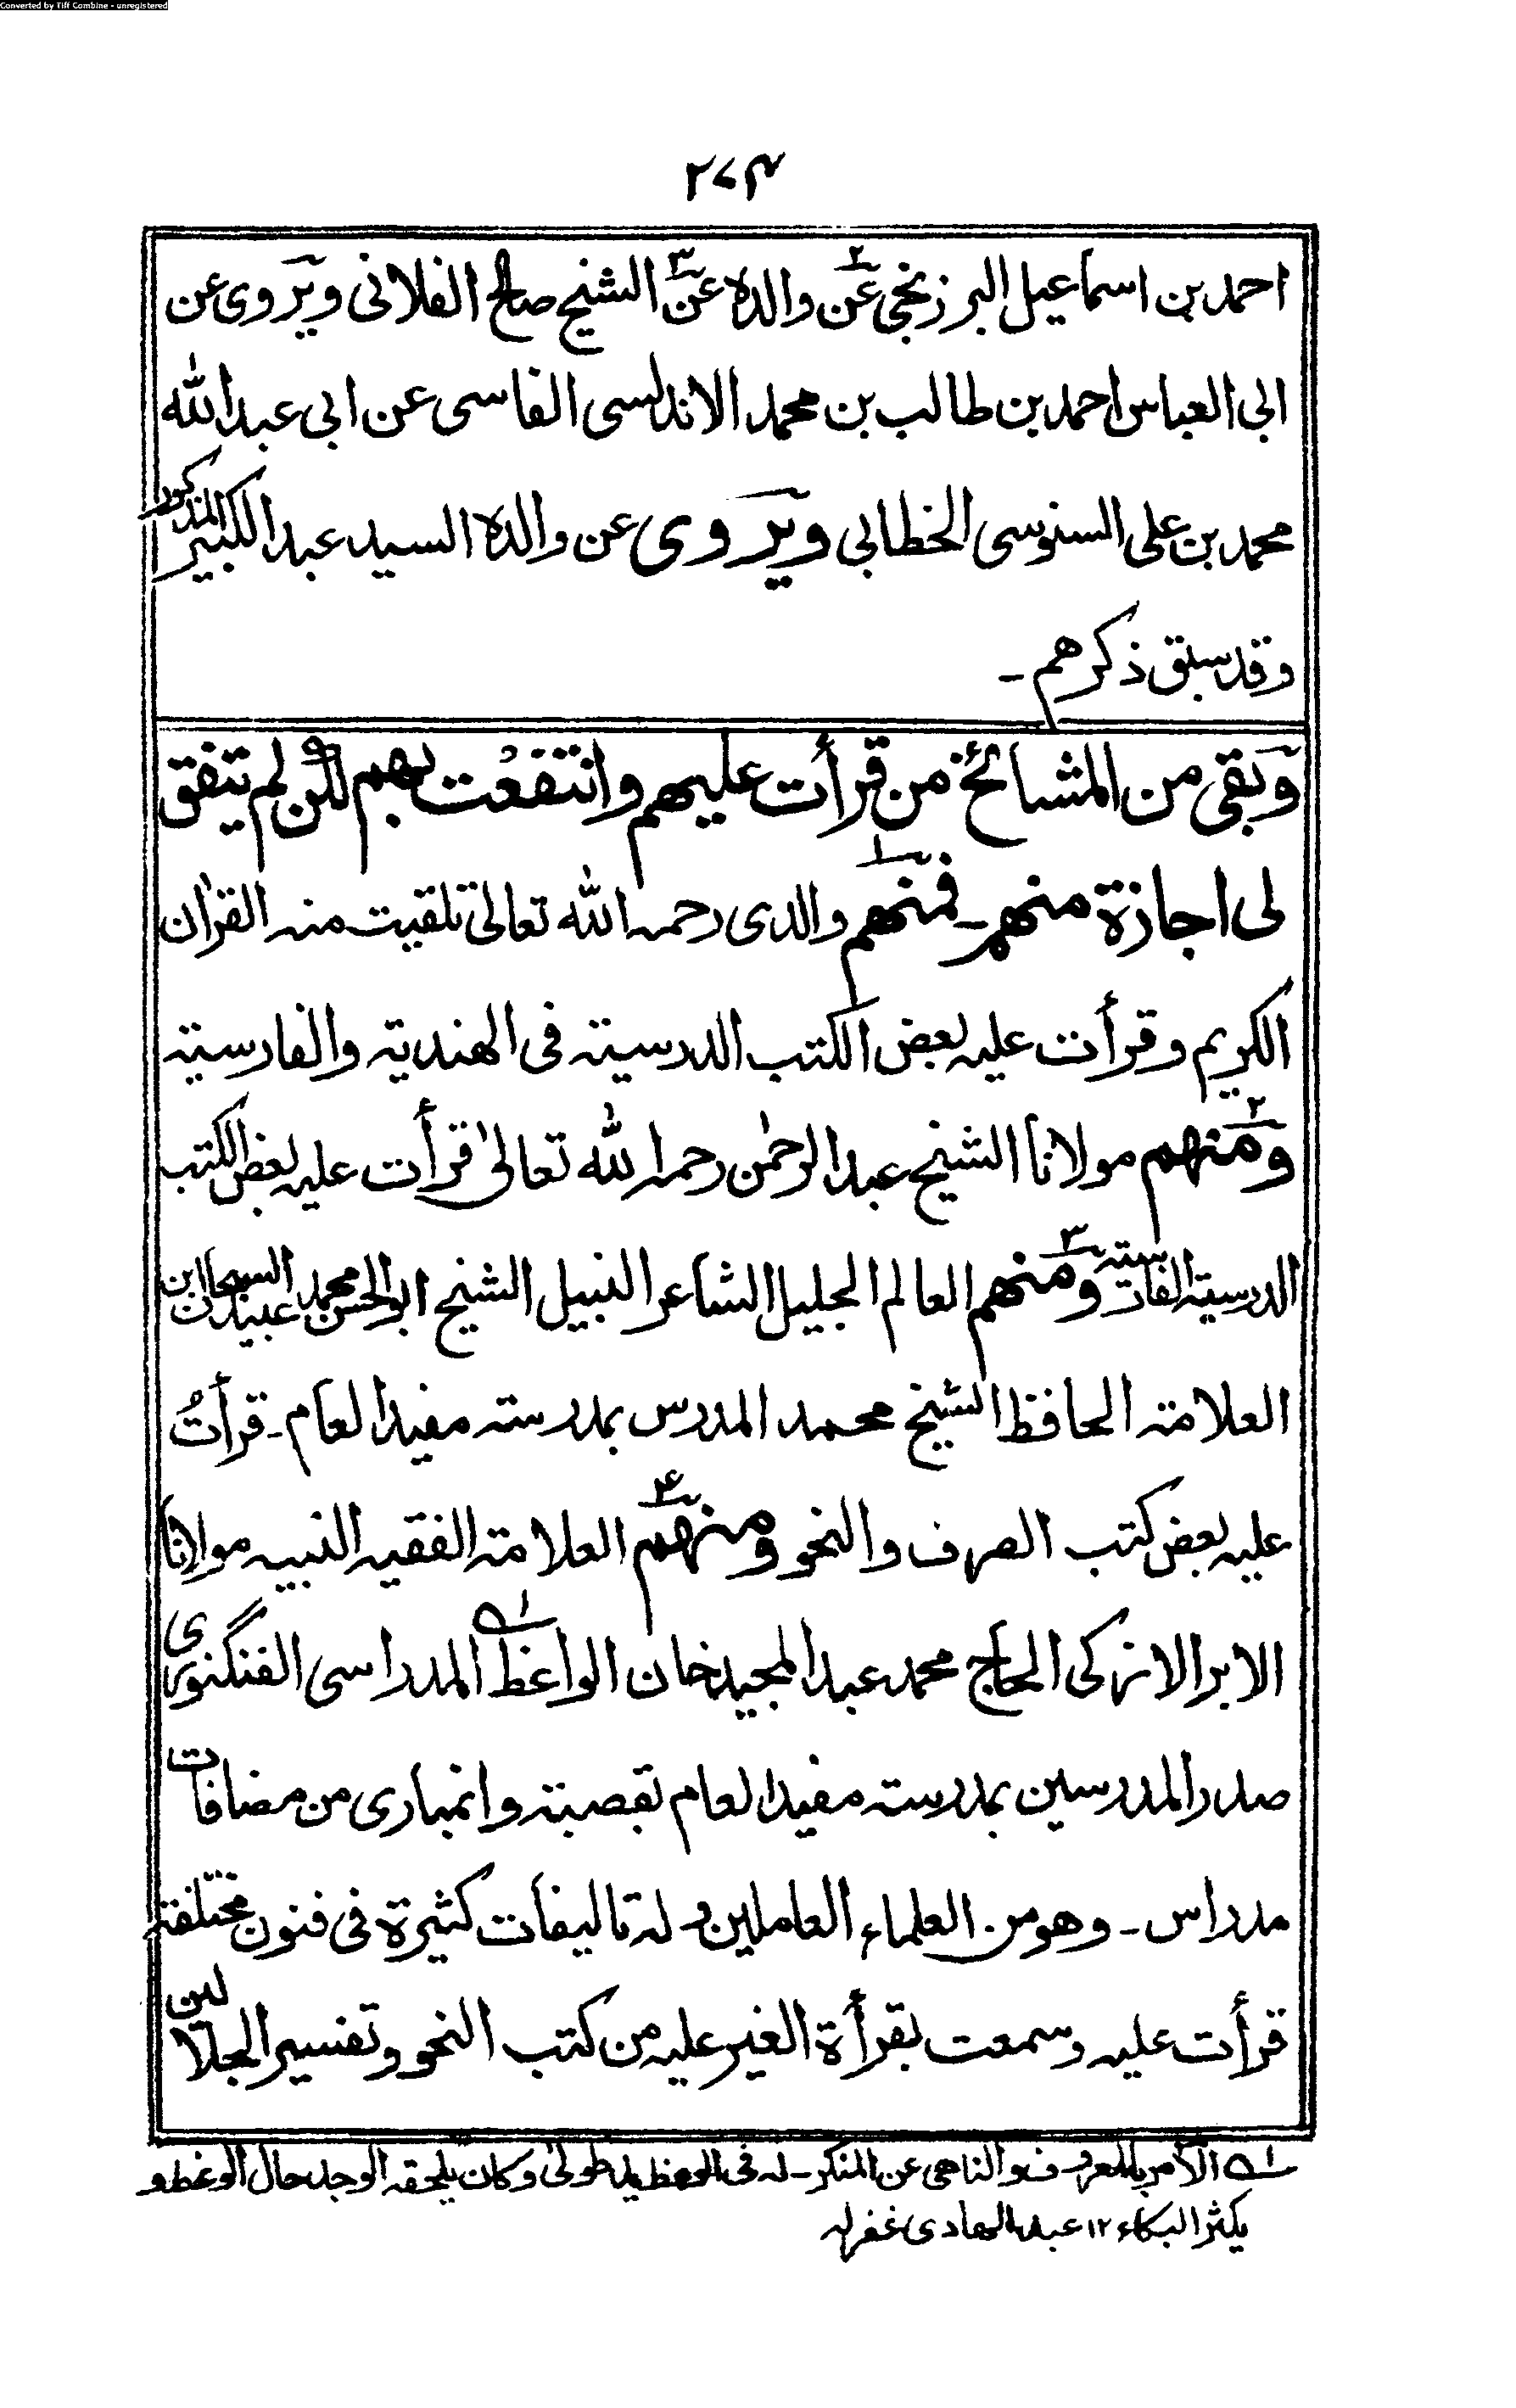 Converted by Tiff Combine - unregistered
۲۷۴
احمد بن اسماعيل البرزنجى عن۲ والده عن۳ الشيخ صالح الفلانى ويروى عن
ابى العباس احمد بن طالب بن محمد الاندلسى الفاسى عن ابى عبد الله
محمد بن على السنوسى الخطابى ويروى عن والده السيد عبد الكبير المذكور
وقد سبق ذكرهم ـ
وبقى من المشائخ من قرأت عليهم وانتفعت بهم لكن لم يتفق
لى اجازة منهم ـ فمنهم۱ والدى رحمه الله تعالى تلقيت منه القرٰان
الكريم وقرأت عليه بعض الكتب الدرسية فى الهندية والفارسية
ومنهم۲ مولانا الشيخ عبد الرحمٰن رحمه الله تعالىٰ قرأت عليه بعض الكتب
الدرسية الفارسية ومنهم۳ العالم الجليل الشاعر النبيل الشيخ ابو الحسن محمد عبيد السبحان ابن
العلامة الحافظ الشيخ محمد المدرس بمدرسته مفيد العام ـ قرأتُ
عليه بعض كتب الصرف والنحو ومنهم۴ العلامة الفقيه النبيه مولانا
الابر الازكى الحاج محمد عبد المجيد خان الواعظ۱ المدراسى الفنگنورى
صدر المدرسين بمدرسته مفيد العام بقصبة وانمبارى من مضافات
مدراس ـ وهو من العلماء العاملين وله تاليفات كثيرة فى فنون مختلفة
قرأت عليه وسمعت بقرأة الغير عليه من كتب النحو وتفسير الجلالين
۱ الآمر بالمعروف والناهى عن المنكر ـ له فى الوعظ يد طولىٰ وكان يلحقه الوجد حال الوعظ و
يكثر البكاء ۱۲ عبد الهادى غفرله